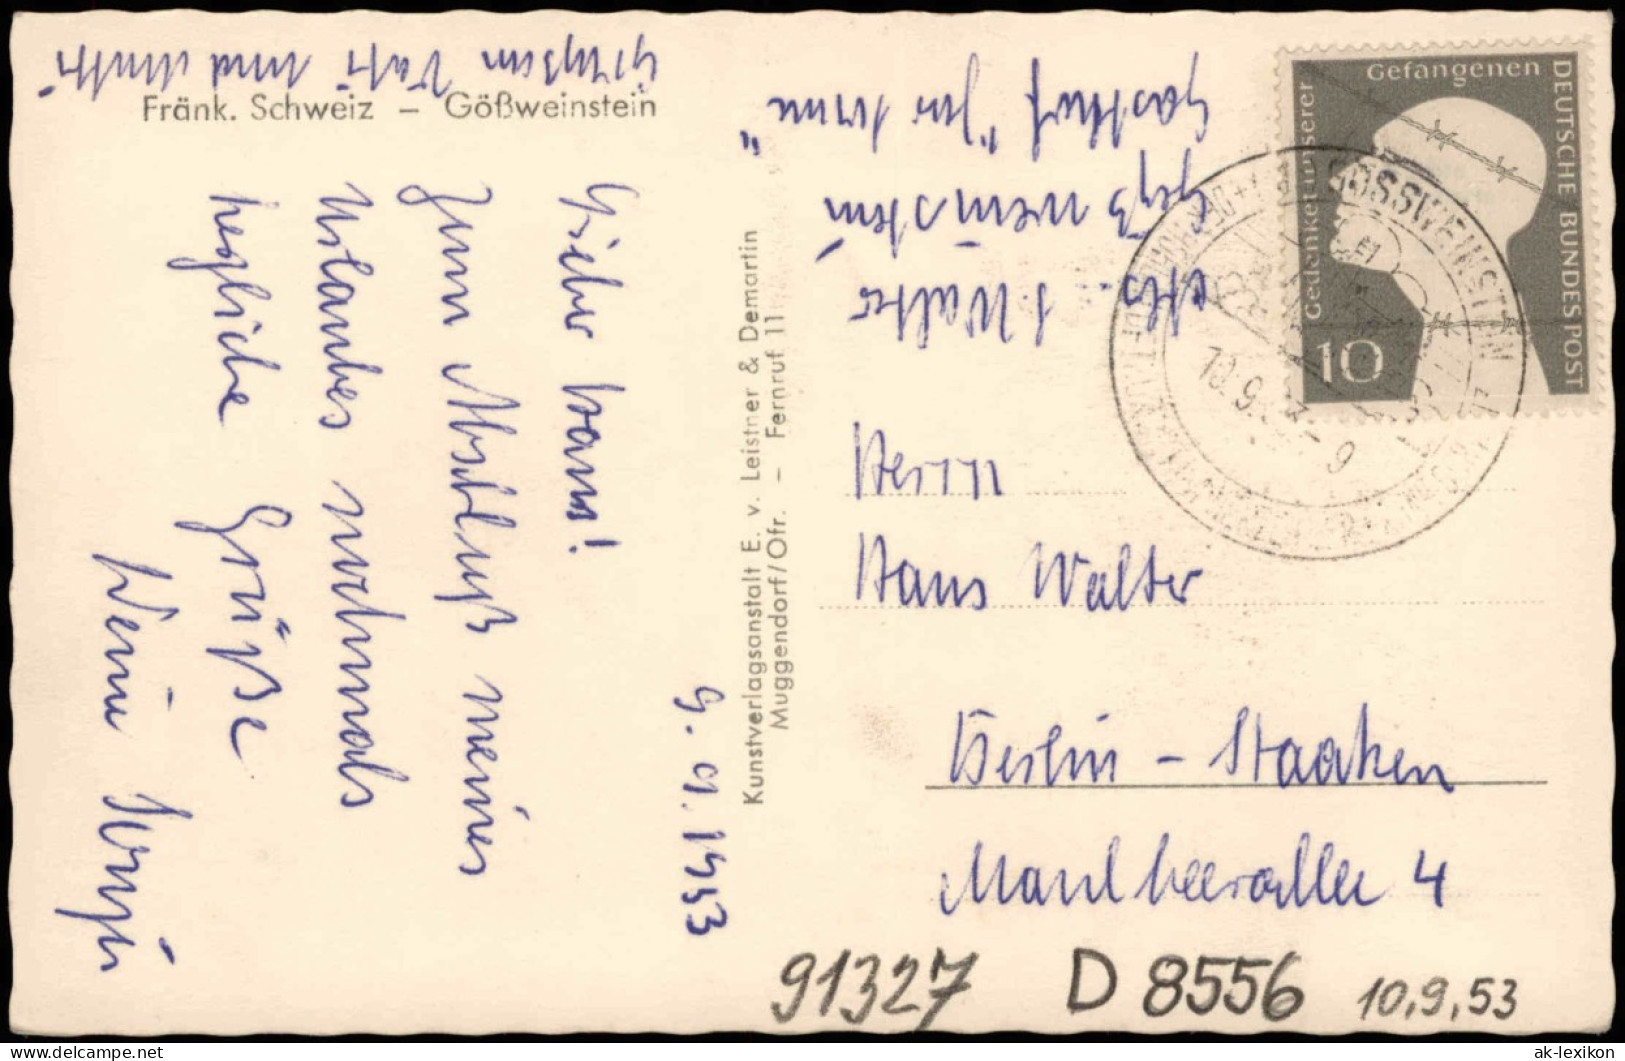 Fränk. Schweiz – Gößweinstein
9. 9. 1953
Lieber Hans!
Zum Abschluß meines
Urlaubes nochmals
herzliche Grüße
Deine
Grüßen Vati und Mutti
Kunstverlagsanstalt E. v. Leistner & Demartin
Muggendorf/Ofr. – Fernruf 11
Abs. Walter
Gößweinstein
Gasthof "Zur
Gedenket unserer
Gefangenen
DEUTSCHE BUNDESPOST
10
GOSSWEINSTEIN
10.9.53-9
Herrn
Hans Walter
Berlin - Staaken
Maulbeerallee 4
91327 D 8556 10.9.53
ak-lexikon